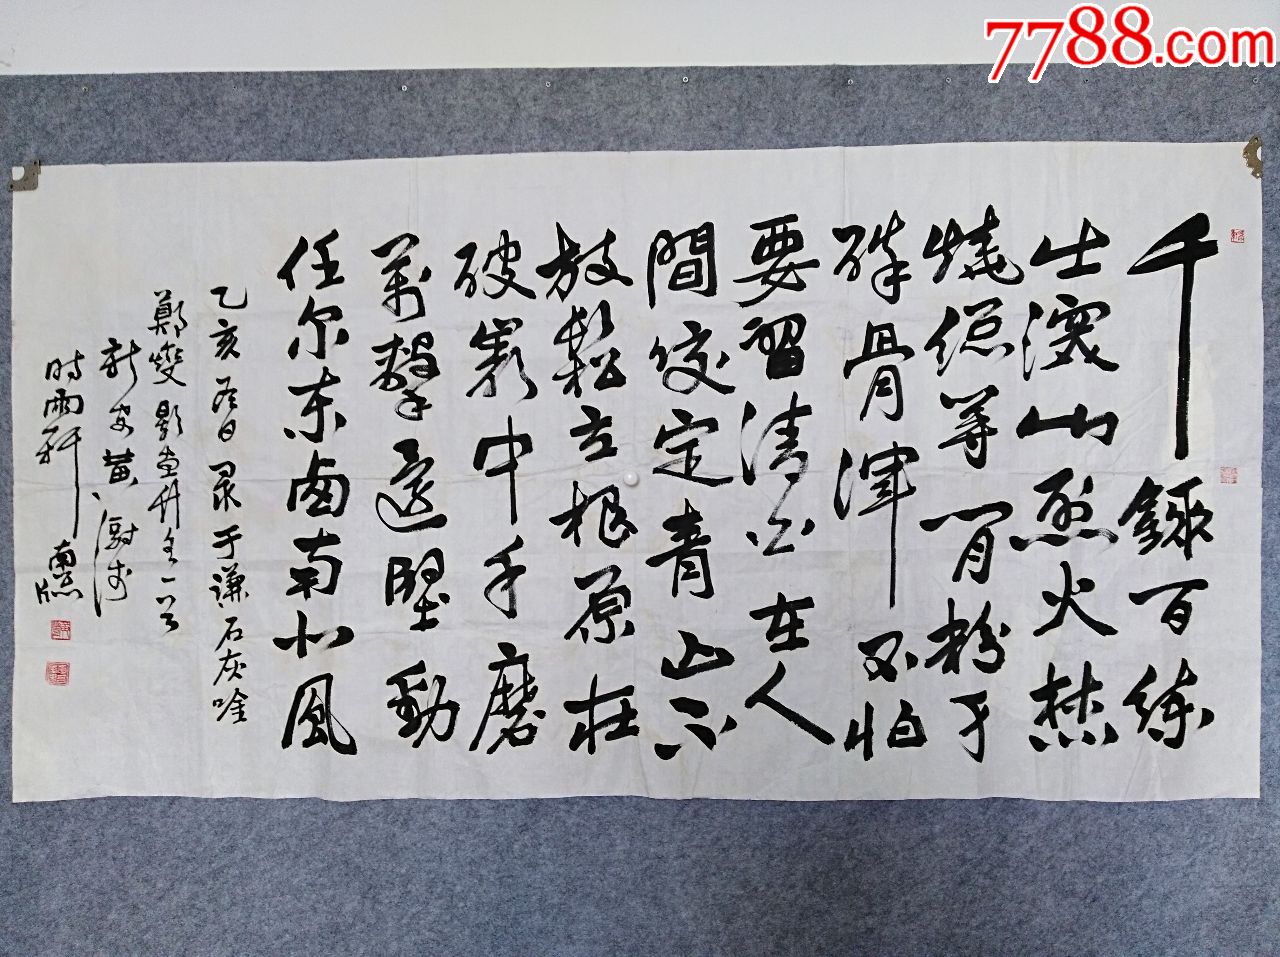 7788.com
千錘百练
出深山烈火焚
燒總等閒粉身
碎骨渾不怕
要留清白在人
間咬定青山不
放鬆立根原在
破巖中千磨
萬擊還堅勁
任尔東西南北風
乙亥春日录于谦石灰吟
鄭燮題画竹各一首
新安黄澍
時雨軒南窗